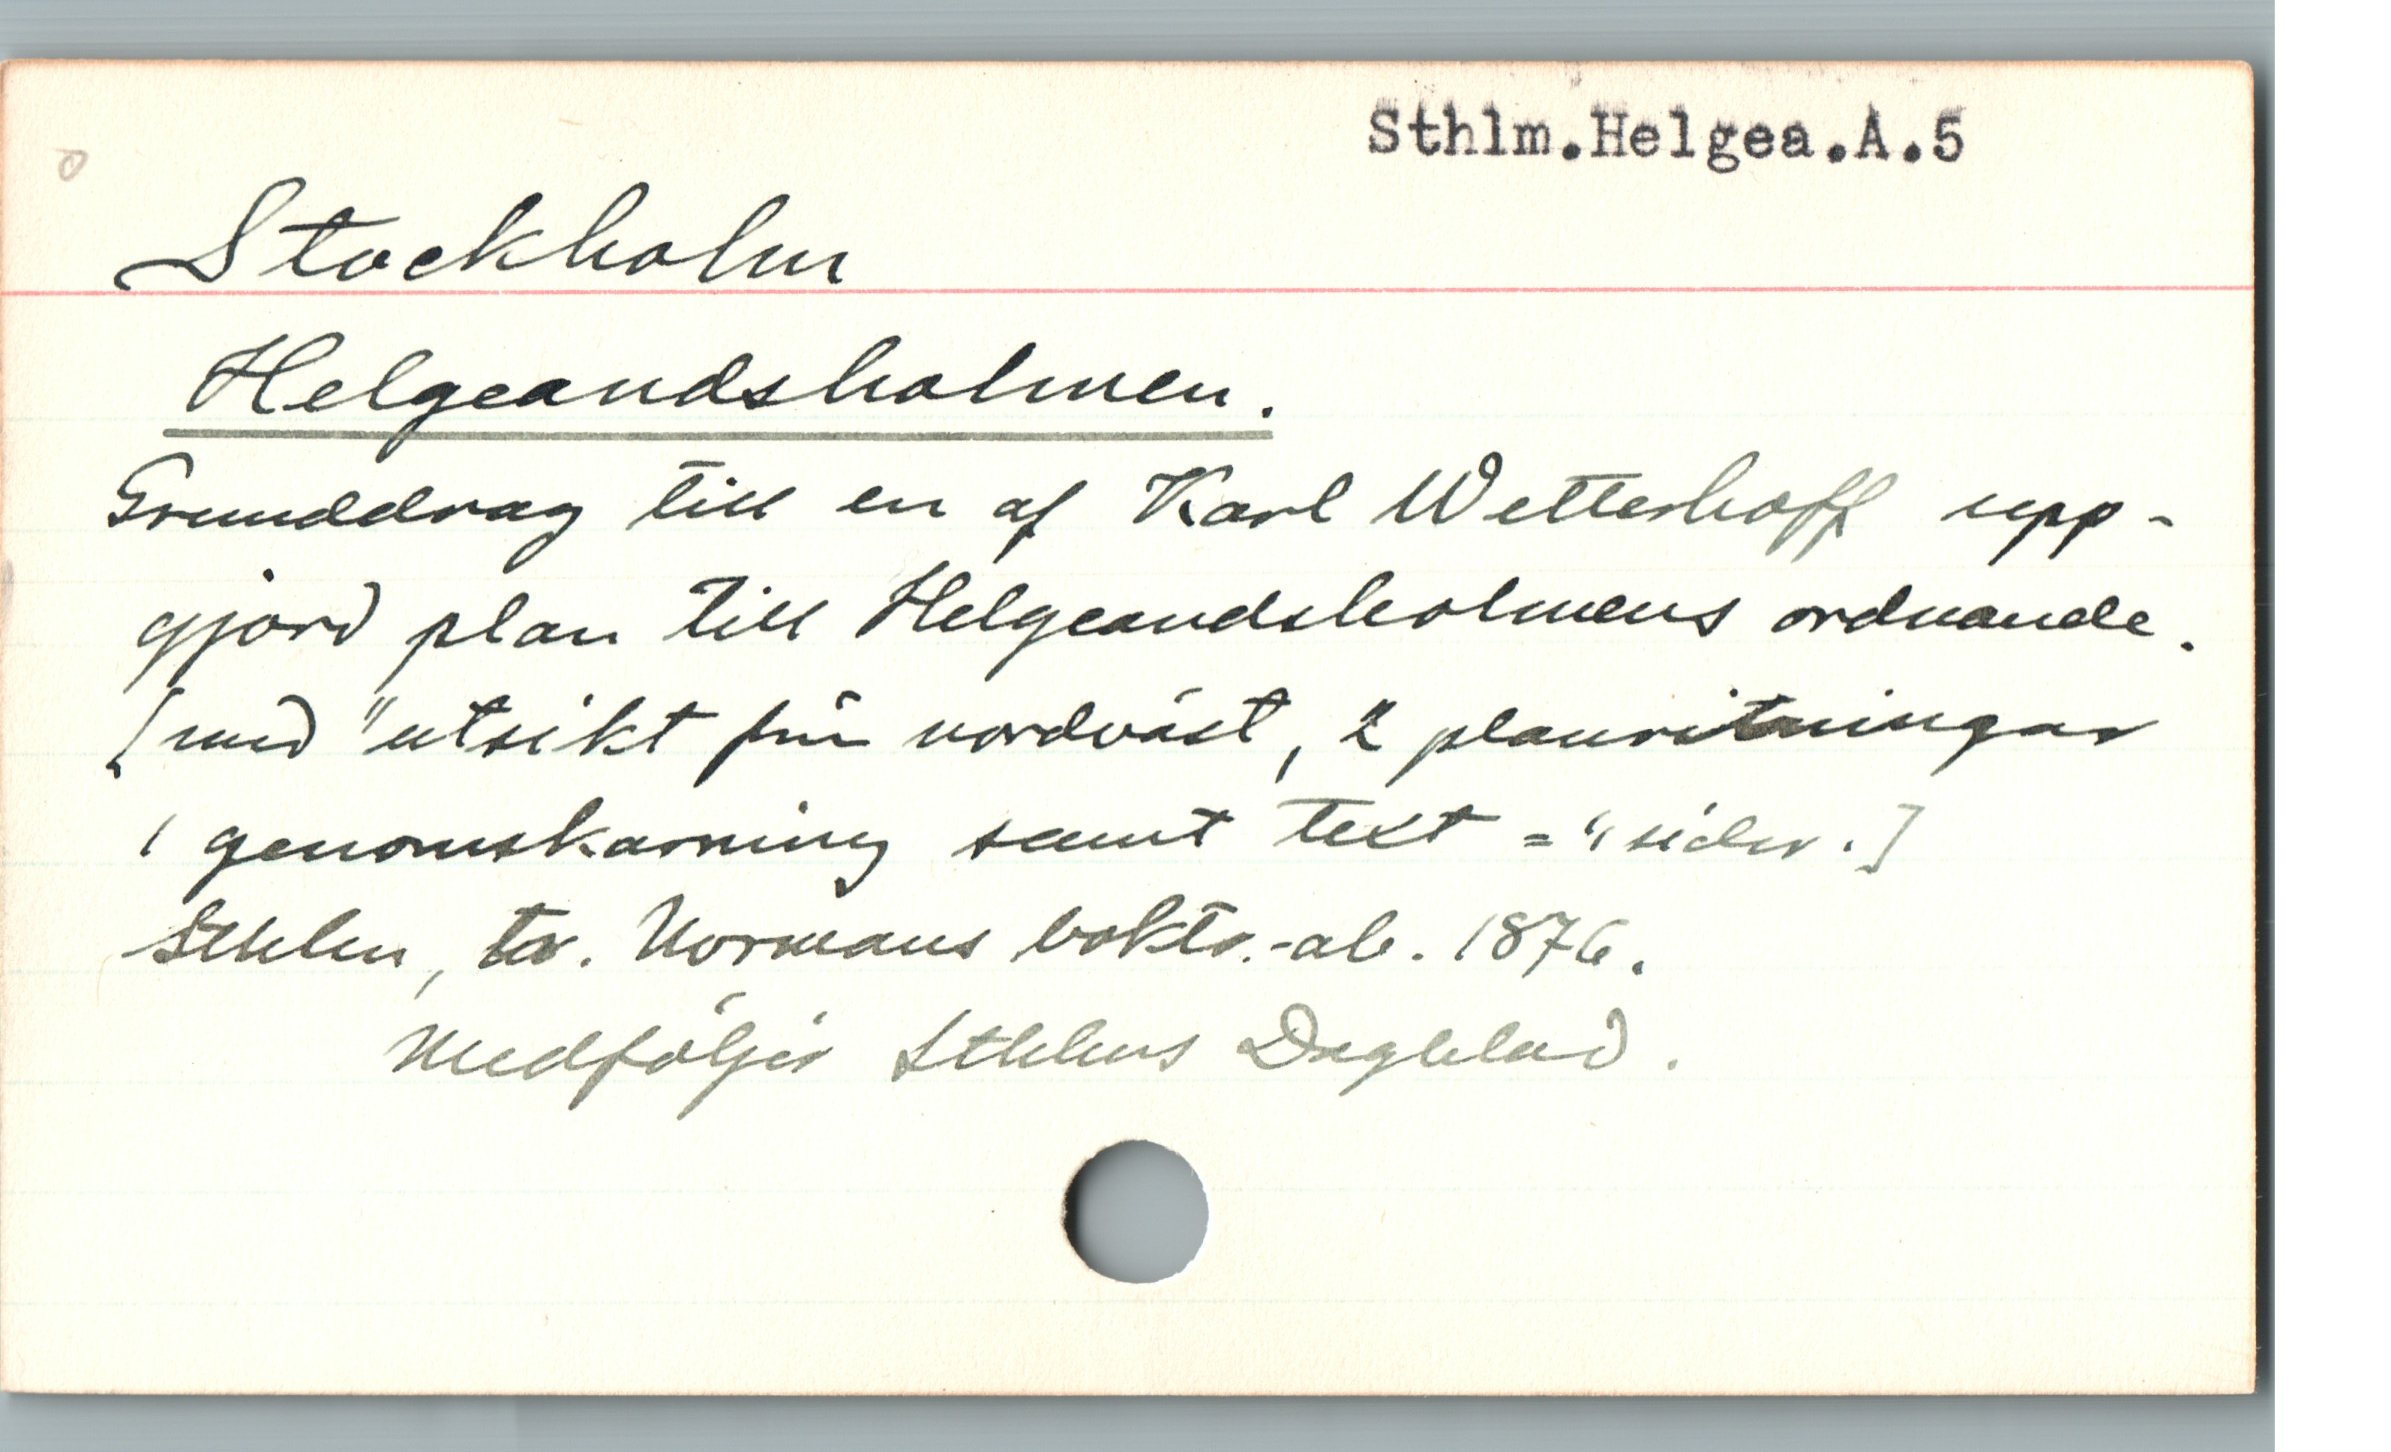 Sthlm.Helgea.A.5
Stockholm
Helgeandsholmen.
Grunddrag till en af Karl Wetterhoff upp-
gjord plan till Helgeandsholmens ordnande.
[med "utsikt från nordväst, 2 planritningar
1 genomskärning samt text = " sidor.]
Sthlm, tr. Normans boktr.-ab. 1876.
Medföljer Sthlms Dagblad.